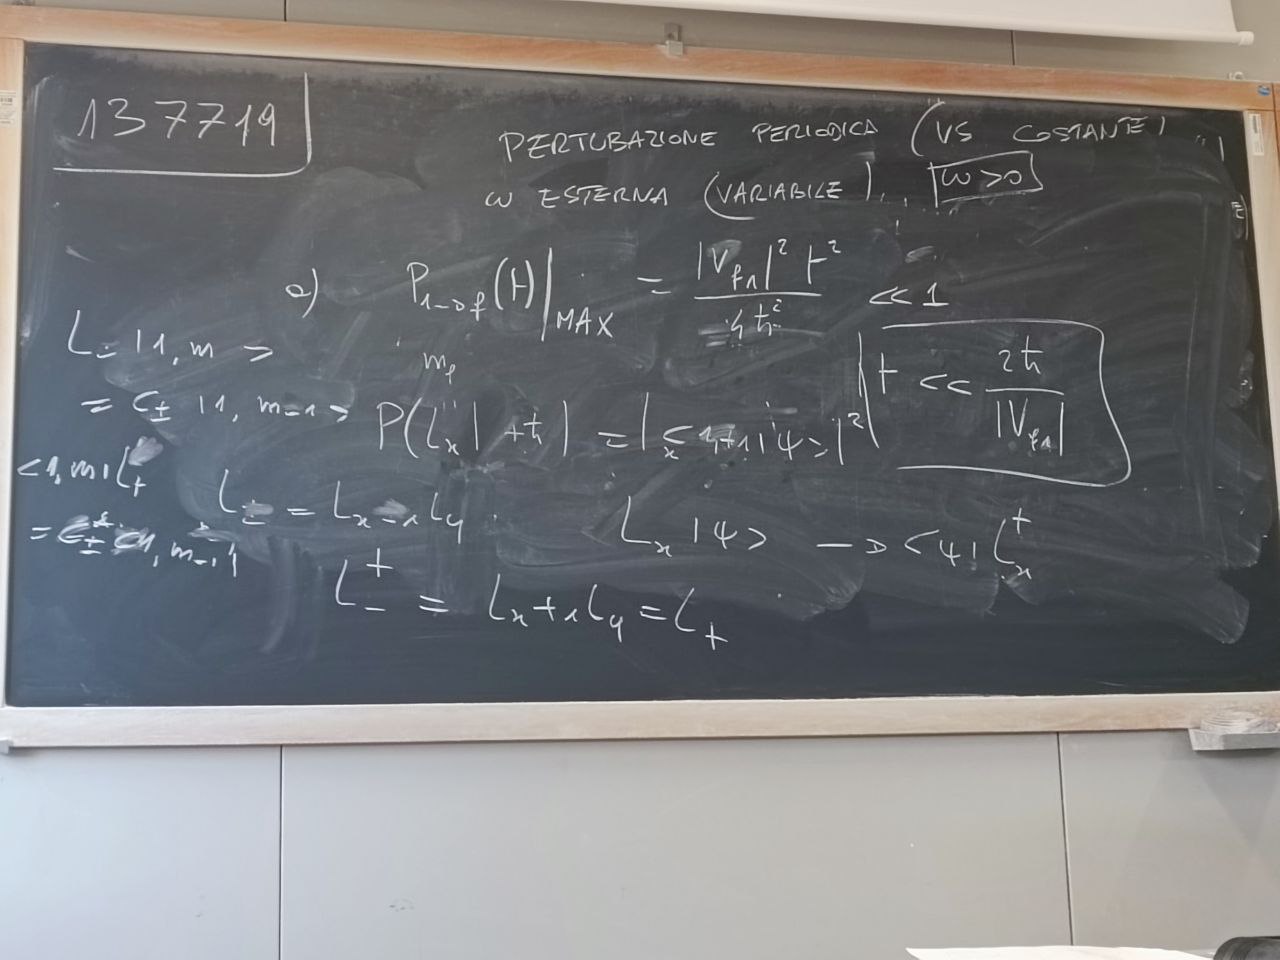 137719
PERTUBAZIONE PERIODICA (VS COSTANTE)
ω ESTERNA (VARIABILE)... ω>0
a) P_{i→f}(t)|_{MAX} = |V_{fi}|² t² / 4ħ² << 1
t << 2ħ / |V_{fi}|
L_- |1, m>
= C_± |1, m-1>
m_f
P(L_x | +ħ) = |_x<1,+1|ψ>|²
<1, m| L_+
= C_±* <1, m-1|
L_- = L_x - i L_y
L_x |ψ> → <ψ| L_x^†
L_-^† = L_x + i L_y = L_+